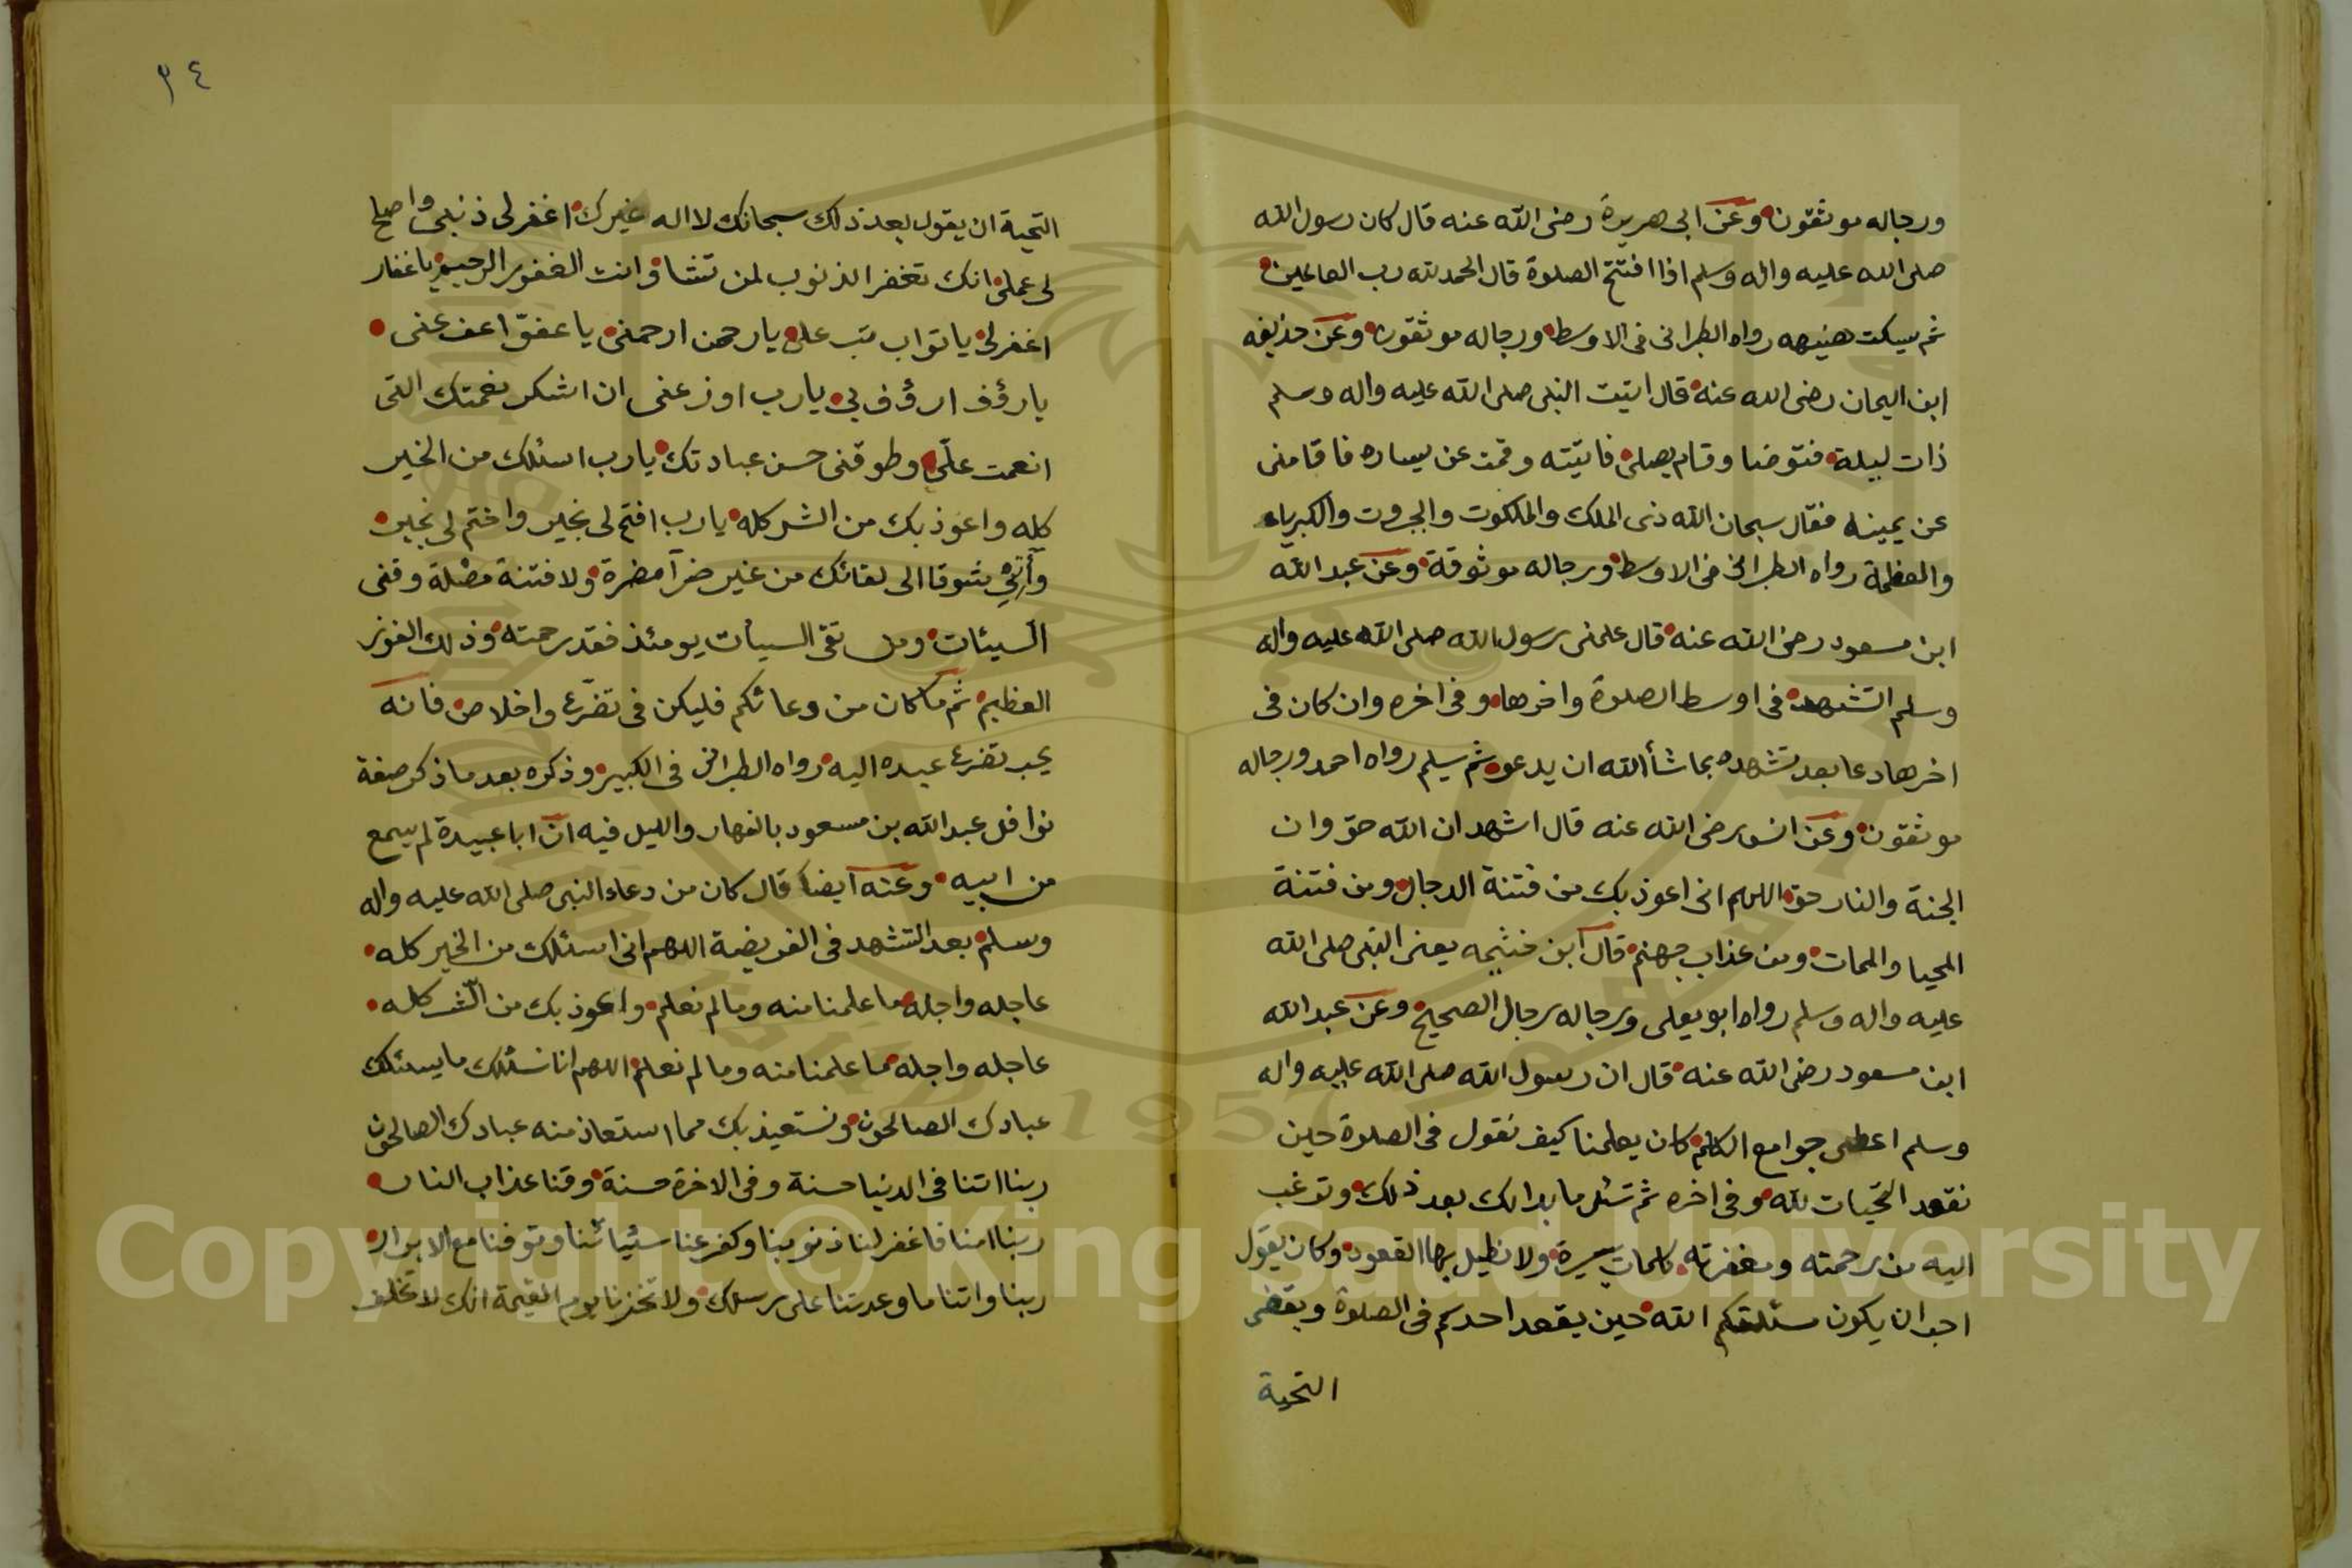 ورجاله موثقون وعن ابى هريرة رضى الله عنه قال كان رسول الله
صلى الله عليه واله وسلم اذا افتتح الصلوة قال الحمد لله رب العالمين
ثم يسكت هنيهه رواه الطبرانى فى الاوسط ورجاله موثقون وعن حذيفه
ابن اليمان رضى الله عنه قال اتيت النبى صلى الله عليه واله وسلم
ذات ليلة فتوضا وقام يصلى فاتيته وقمت عن يساره فاقامنى
عن يمينه فقال سبحان الله ذى الملك والملكوت والجبروت والكبرياء
والعظمة رواه الطبرانى فى الاوسط ورجاله موثوقة وعن عبد الله
ابن مسعود رضى الله عنه قال علمنى رسول الله صلى الله عليه واله
وسلم التشهد فى اوسط الصلوة واخرها وفى اخره وان كان فى
اخرها دعا بعد تشهده بما شأ الله ان يدعو ثم يسلم رواه احمد ورجاله
موثقون وعن انس رضى الله عنه قال اشهد ان الله حق وان
الجنة والنار حق اللهم انى اعوذ بك من فتنة الدجال ومن فتنة
المحيا والممات ومن عذاب جهنم قال ابن خثيمه يعنى النبى صلى الله
عليه واله وسلم رواه ابو يعلى ورجاله رجال الصحيح وعن عبد الله
ابن مسعود رضى الله عنه قال ان رسول الله صلى الله عليه واله
وسلم اعطى جوامع الكلم كان يعلمنا كيف نقول فى الصلوة حين
نقعد التحيات لله وفى اخره ثم تسئل ما بدا لك بعد ذلك وترغب
اليه من رحمته ومغفرته كلمات يسيرة ولا نطيل بها القعود وكان يقول
احب ان يكون مسئلتكم الله حين يقعد احدكم فى الصلوة ويقضى
التحية
٣٤
التحية ان يقول بعد ذلك سبحانك لا اله غيرك اغفر لى ذنبى واصلح
لى عملى انك تغفر الذنوب لمن تشا وانت الغفور الرحيم يا غفار
اغفر لى يا تواب تب على يا رحمن ارحمنى يا عفوّ اعف عنى
يا رؤف ارؤف بى يا رب اوزعنى ان اشكر نعمتك التى
انعمت علىّ وطوقنى حسن عبادتك يا رب اسئلك من الخير
كله واعوذ بك من الشر كله يا رب افتح لى بخير واختم لى بخير
وآتنى شوقا الى لقائك من غير ضرآ مضرة ولا فتنة مضلة وقنى
السيئات ومن تقى السيأت يومئذ فقد رحمته وذلك الفوز
العظيم ثم ما كان من دعائكم فليكن فى تضرّع واخلاص فانه
يحب تضرع عبده اليه رواه الطبرانى فى الكبير وذكره بعد ما ذكر صفة
نوافل عبد الله بن مسعود بالنهار والليل فيه ان ابا عبيدة لم يسمع
من ابيه وعنه ايضا قال كان من دعاء النبى صلى الله عليه واله
وسلم بعد التشهد فى الفريضة اللهم انى اسئلك من الخير كله
عاجله واجله ما علمنا منه وما لم نعلم واعوذ بك من الشر كله
عاجله واجله مما علمنا منه وما لم نعلم اللهم انا نسئلك ما يسئلك
عبادك الصالحون ونستعيذ بك مما استعاذ منه عبادك الصالحون
ربنا اتنا فى الدنيا حسنة وفى الاخرة حسنة وقنا عذاب النار
ربنا امنا فاغفر لنا ذنوبنا وكفر عنا سيئاتنا وتوفنا مع الابرار
ربنا واتنا ما وعدتنا على رسلك ولا تخزنا يوم القيمة انك لا تخلف
Copyright © King Saud University
1957